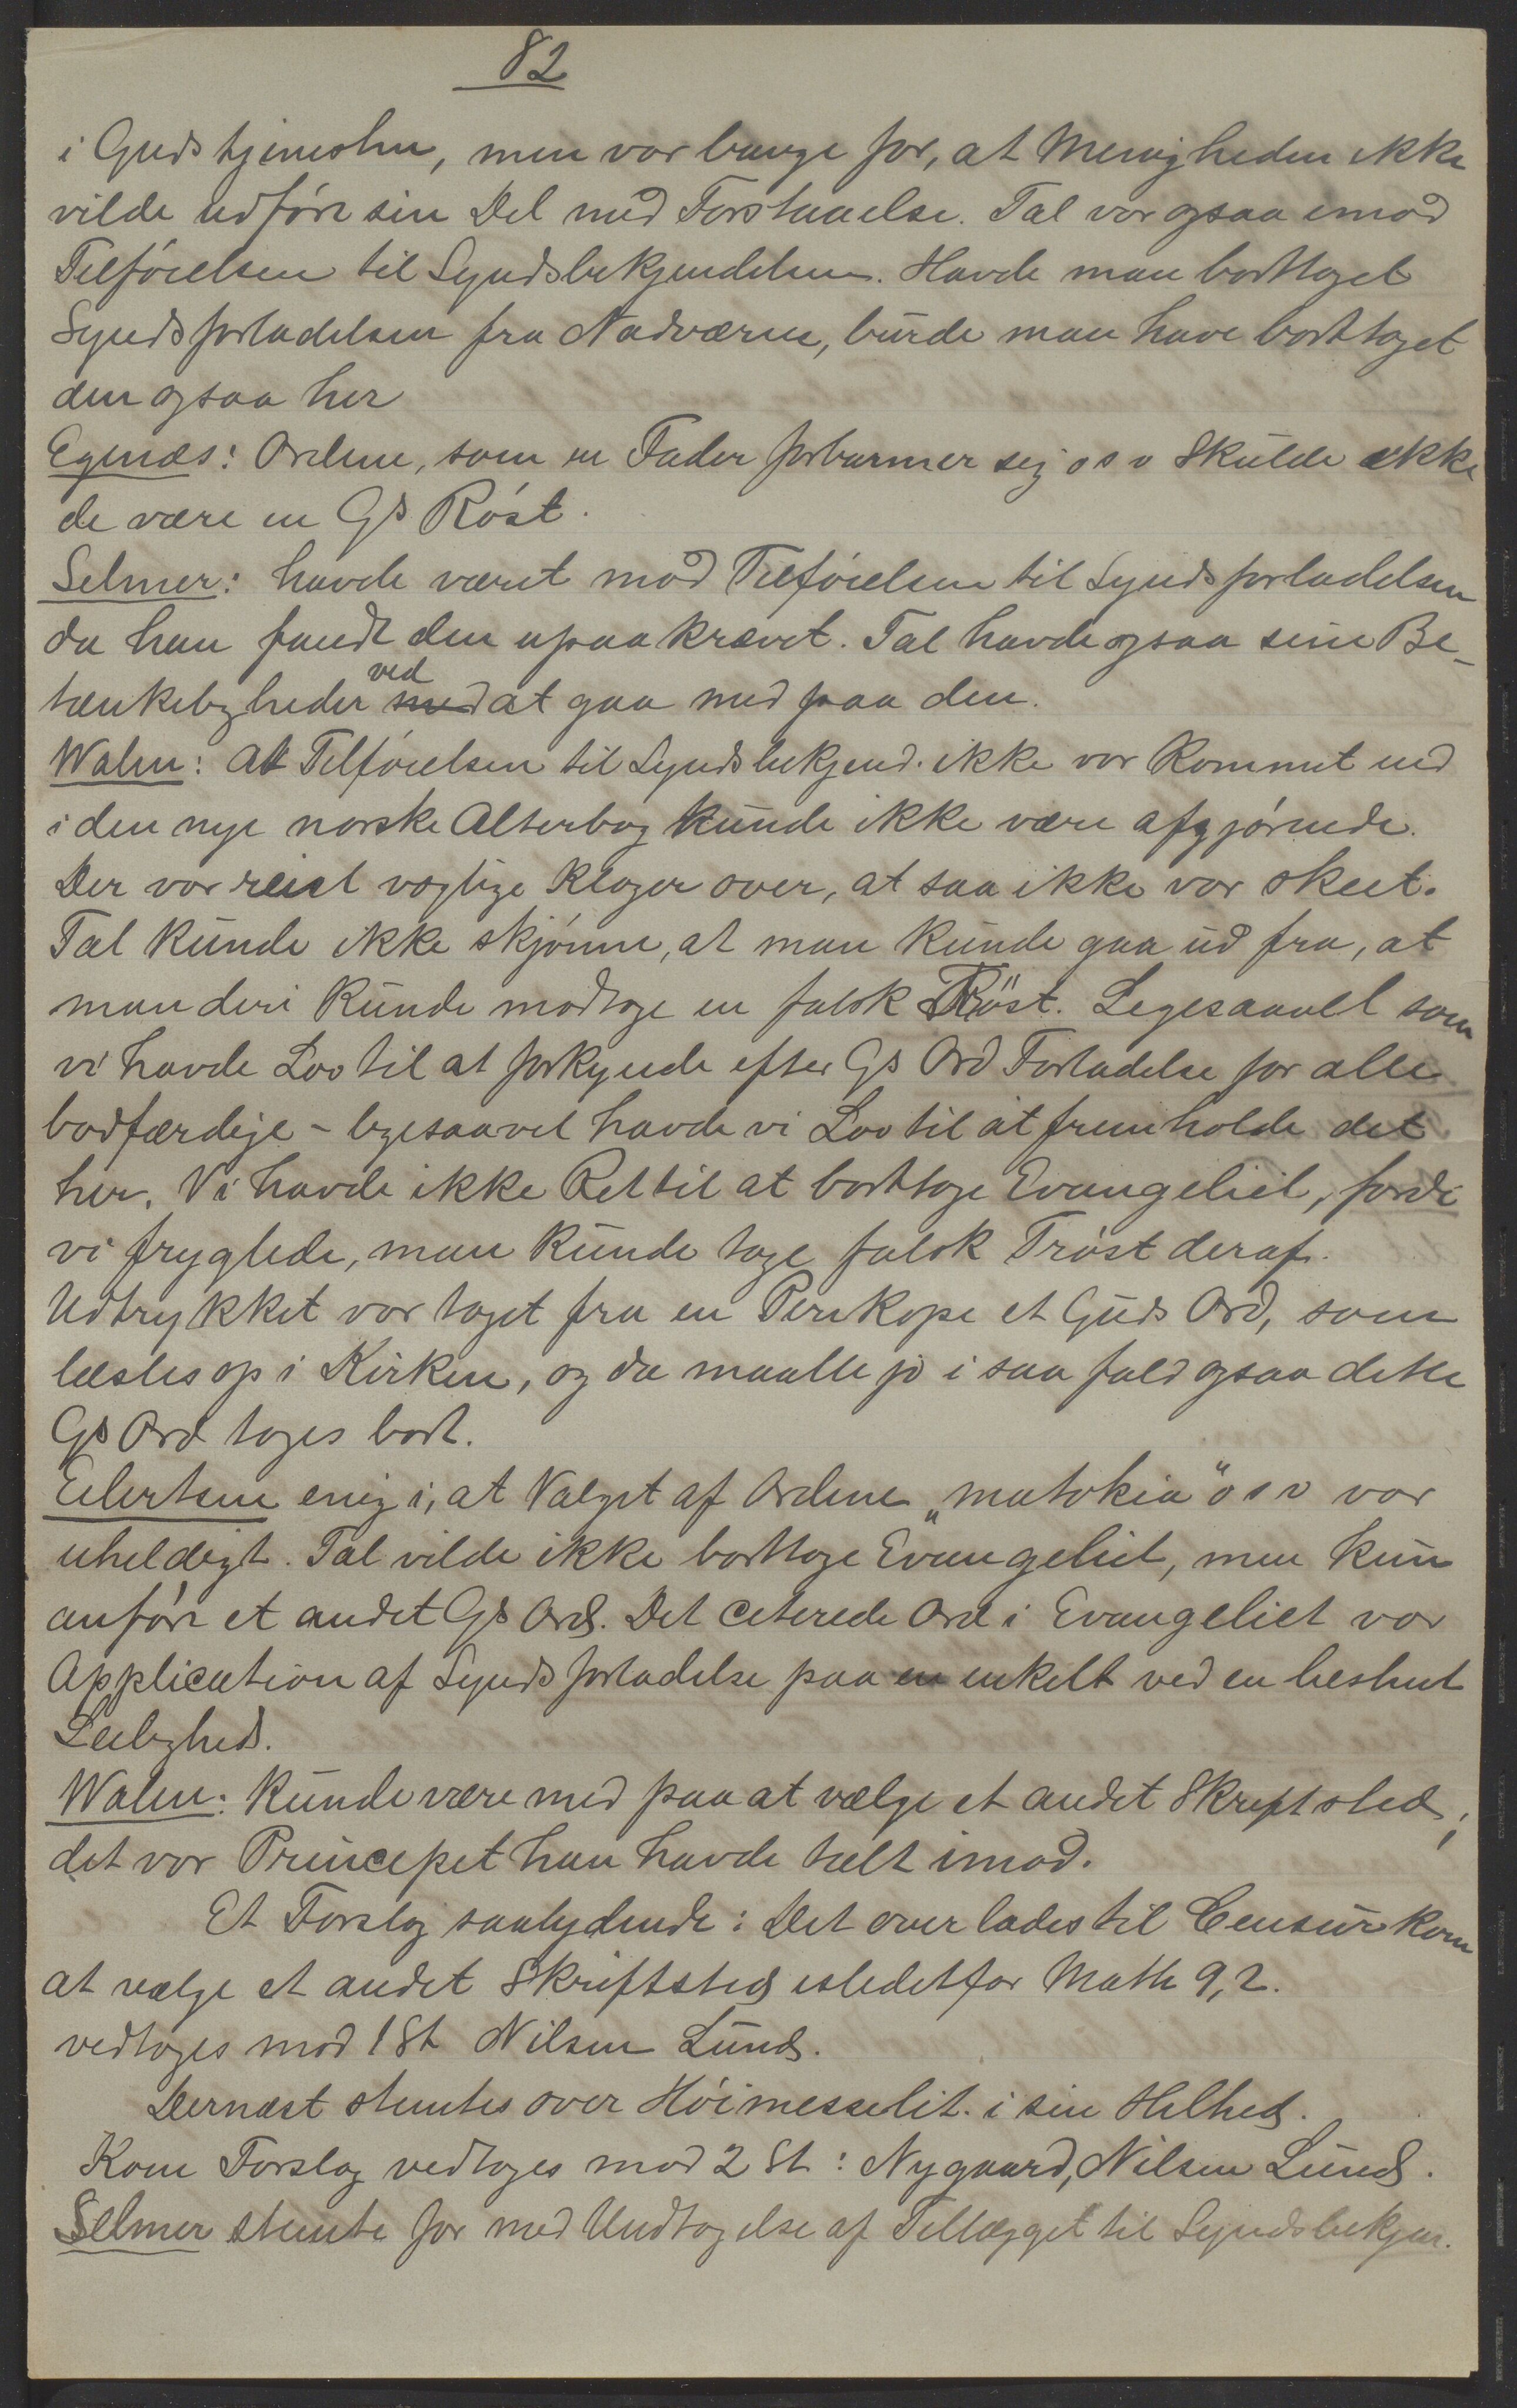 82
i Gudstjenesten, men var bange for, at Menigheden ikke
vilde udføre sin Del med Forstaaelse. Tal var ogsaa imod
Tilføielsen til Syndsbekjendelsen. Havde man borttaget
Syndsforladelsen fra Nadværen, burde man have borttaget
den ogsaa her
Egenæs: Ordene, som en Fader forbarmer sig osv Skulde ikke
de være en Gs Røst.
Selmer: havde været mod Tilføielsen til Syndsforladelsen
da han fandt den upaakrævet. Tal havde ogsaa sine Be-
tænkeligheder ved at gaa med paa den.
Walen: At Tilføielsen til Syndsbekjend. ikke var kommet ind
i den nye norske Alterbog kunde ikke være afgjørende.
Der var reist vægtige Klager over, at saa ikke var skeet.
Tal kunde ikke skjønne, at man kunde gaa ud fra, at
man deri kunde modtage en falsk Trøst. Ligesaavel som
vi havde Lov til at forkynde efter Gs Ord Forladelse for alle
bodfærdige - ligesaavel havde vi Lov til at fremholde det
her. Vi havde ikke Ret til at borttage Evangeliet, fordi
vi frygtede, man kunde tage falsk Trøst deraf.
Udtrykket var taget fra en Perikope et Guds Ord, som
læstes op i Kirken, og da maatte jo i saa fald ogsaa dette
Gs Ord tages bort.
Eilertsen enig i, at Valget af Ordene „matokia" osv var
uheldigt. Tal vilde ikke borttage Evangeliet, men kun
anføre et andet Gs Ord. Det citerede Ord i Evangeliet var
Application af Syndsforladelse paa en enkelt ved en bestemt
Leilighed.
Walen: Kunde være med paa at vælge et andet Skriftsted;
det var Princepet han havde talt imod.
Et Forslag saalydende: Det overlades til Censurkom
at vælge et andet Skriftsted istedetfor Matth 9,2.
vedtoges mod 1 St Nilsen Lund.
Dernæst stemtes over Høimesselit. i sin Helhed.
Kom Forslag vedtoges mod 2 St: Nygaard, Nilsen Lund.
Selmer stemte for med Undtagelse af Tillægget til Syndsbekjen.